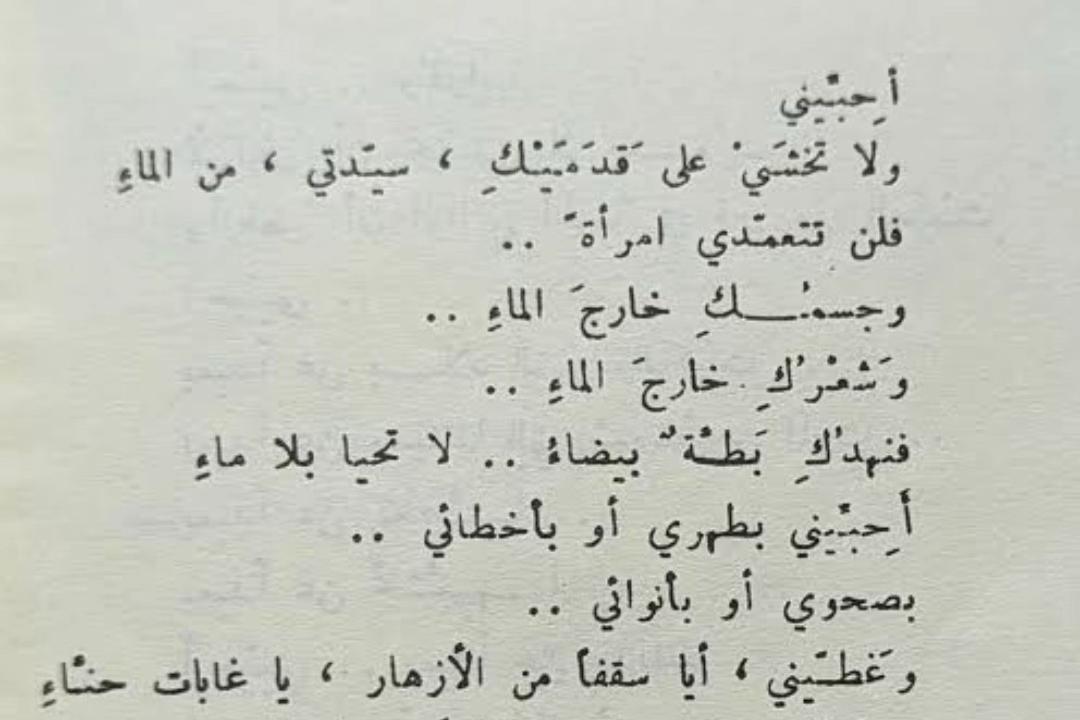 أَحِبّيني
ولا تَخْشَيْ على قَدمَيْكِ ، سيّدتي ، من الماءِ
فلن تتعمّدي امرأةً ..
وجسمُـــكِ خارجَ الماءِ ..
وَشعْرُكِ خارجَ الماءِ ..
فنهدُكِ بَطـّةٌ بيضاءُ .. لا تحيا بلا ماءِ
أَحِبّيني بطهري أو بأخطائي ..
بصحوي أو بأنوائي ..
وَغطـّيني ، أيا سقفاً من الأزهار ، يا غابات حنّاءِ